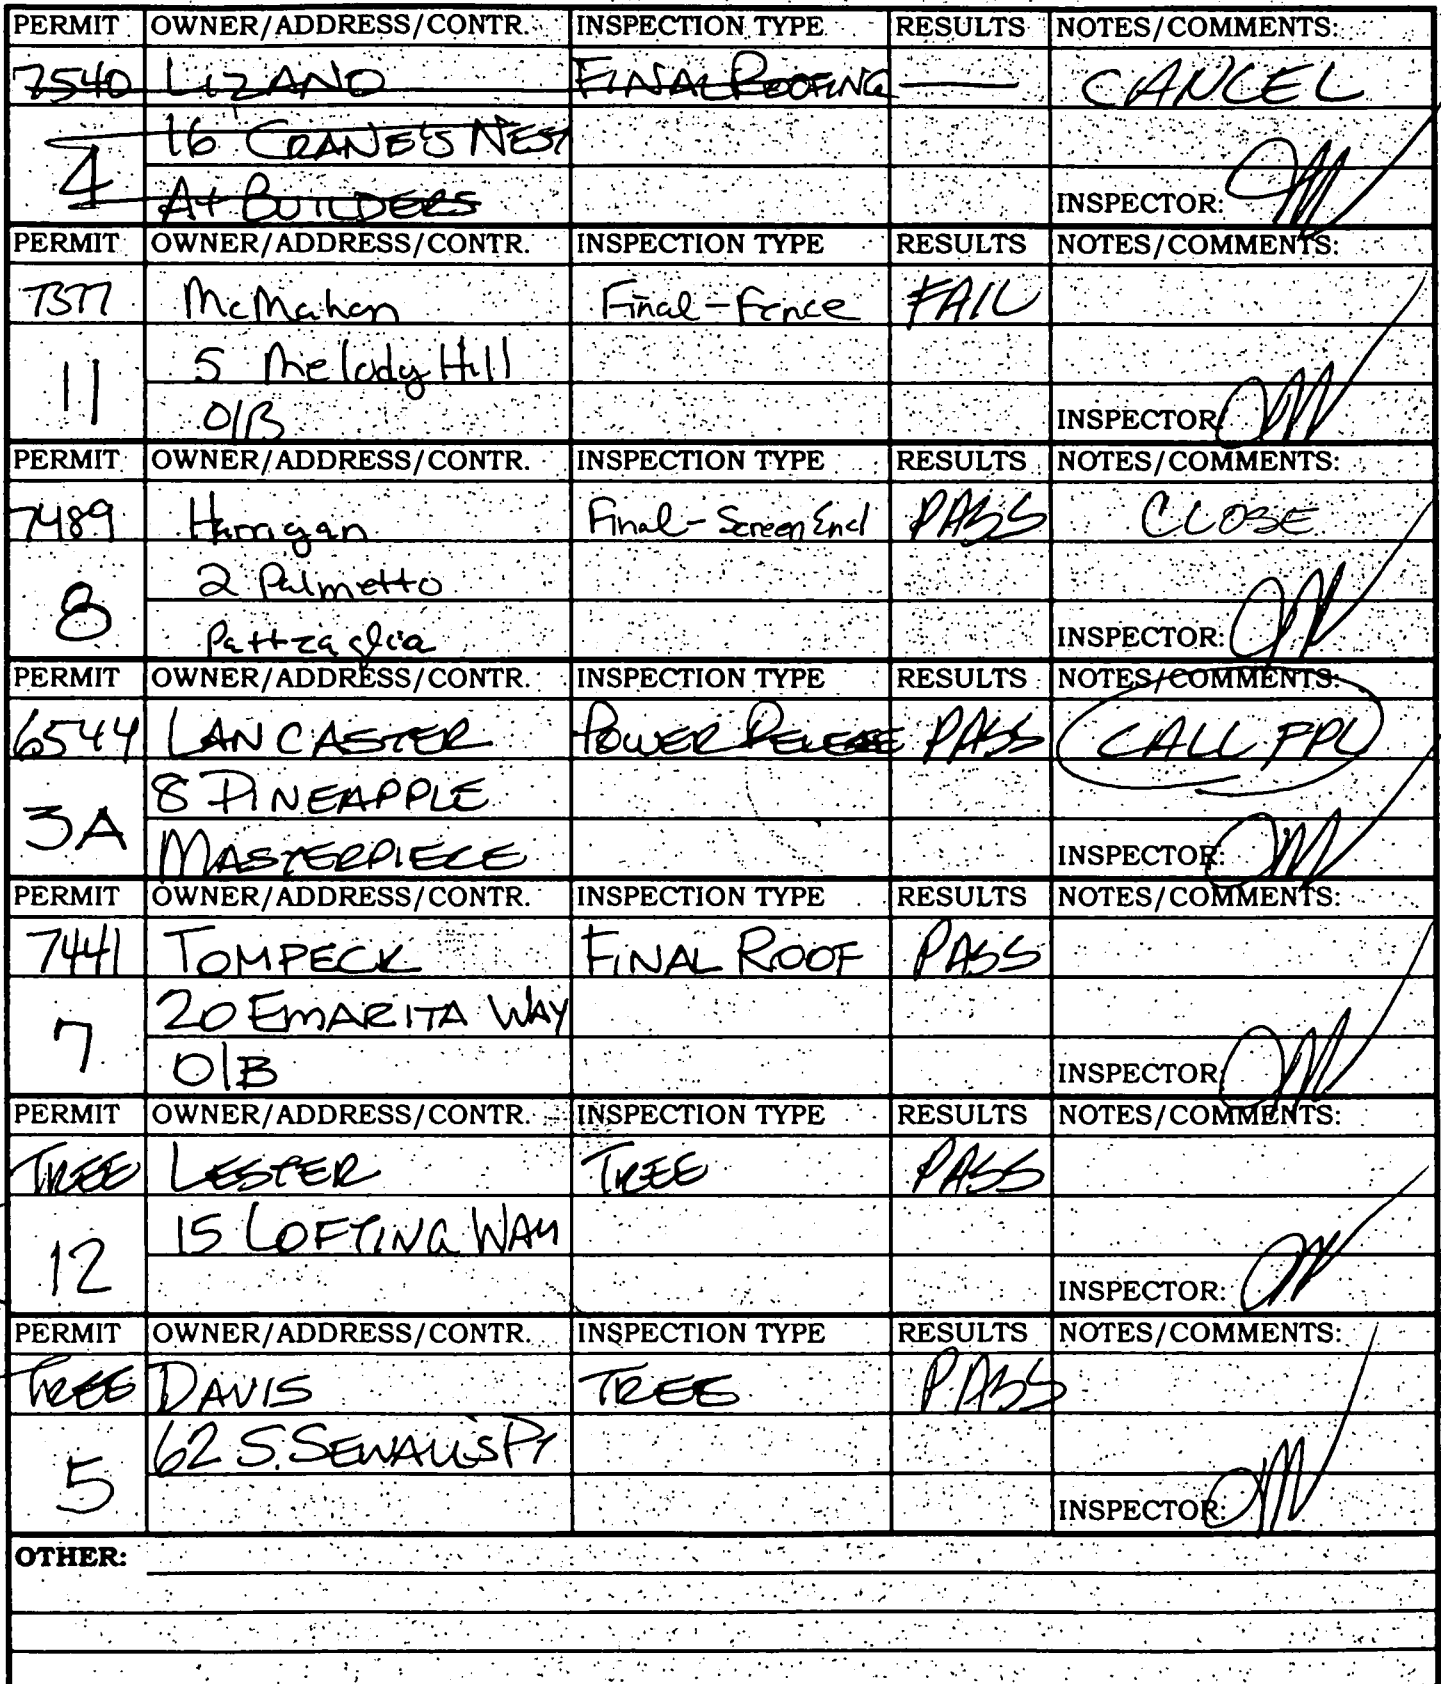 PERMIT OWNER/ADDRESS/CONTR. INSPECTION TYPE RESULTS NOTES/COMMENTS:
7540 LIZANO FINAL ROOFING — CANCEL
16 CRANE'S NEST
4
A+ BUILDERS INSPECTOR:
PERMIT OWNER/ADDRESS/CONTR. INSPECTION TYPE RESULTS NOTES/COMMENTS:
7377 McMahon Final-Fence FAIL
5 Melody Hill
11
O/B INSPECTOR:
PERMIT OWNER/ADDRESS/CONTR. INSPECTION TYPE RESULTS NOTES/COMMENTS:
7489 Harrigan Final-Screen Encl PASS CLOSE
2 Palmetto
8
INSPECTOR:
PERMIT OWNER/ADDRESS/CONTR. INSPECTION TYPE RESULTS NOTES/COMMENTS:
6544 LANCASTER POWER RELEASE PASS CALL FPL
8 PINEAPPLE
3A
MASTERPIECE INSPECTOR:
PERMIT OWNER/ADDRESS/CONTR. INSPECTION TYPE RESULTS NOTES/COMMENTS:
7441 TOMPECK FINAL ROOF PASS
20 EMARITA WAY
7
O/B INSPECTOR:
PERMIT OWNER/ADDRESS/CONTR. INSPECTION TYPE RESULTS NOTES/COMMENTS:
TREE LESTER TREE PASS
15 LOFTING WAY
12
INSPECTOR:
PERMIT OWNER/ADDRESS/CONTR. INSPECTION TYPE RESULTS NOTES/COMMENTS:
TREE DAVIS TREE PASS
62 S. SEWALL'S PT
5
INSPECTOR:
OTHER: